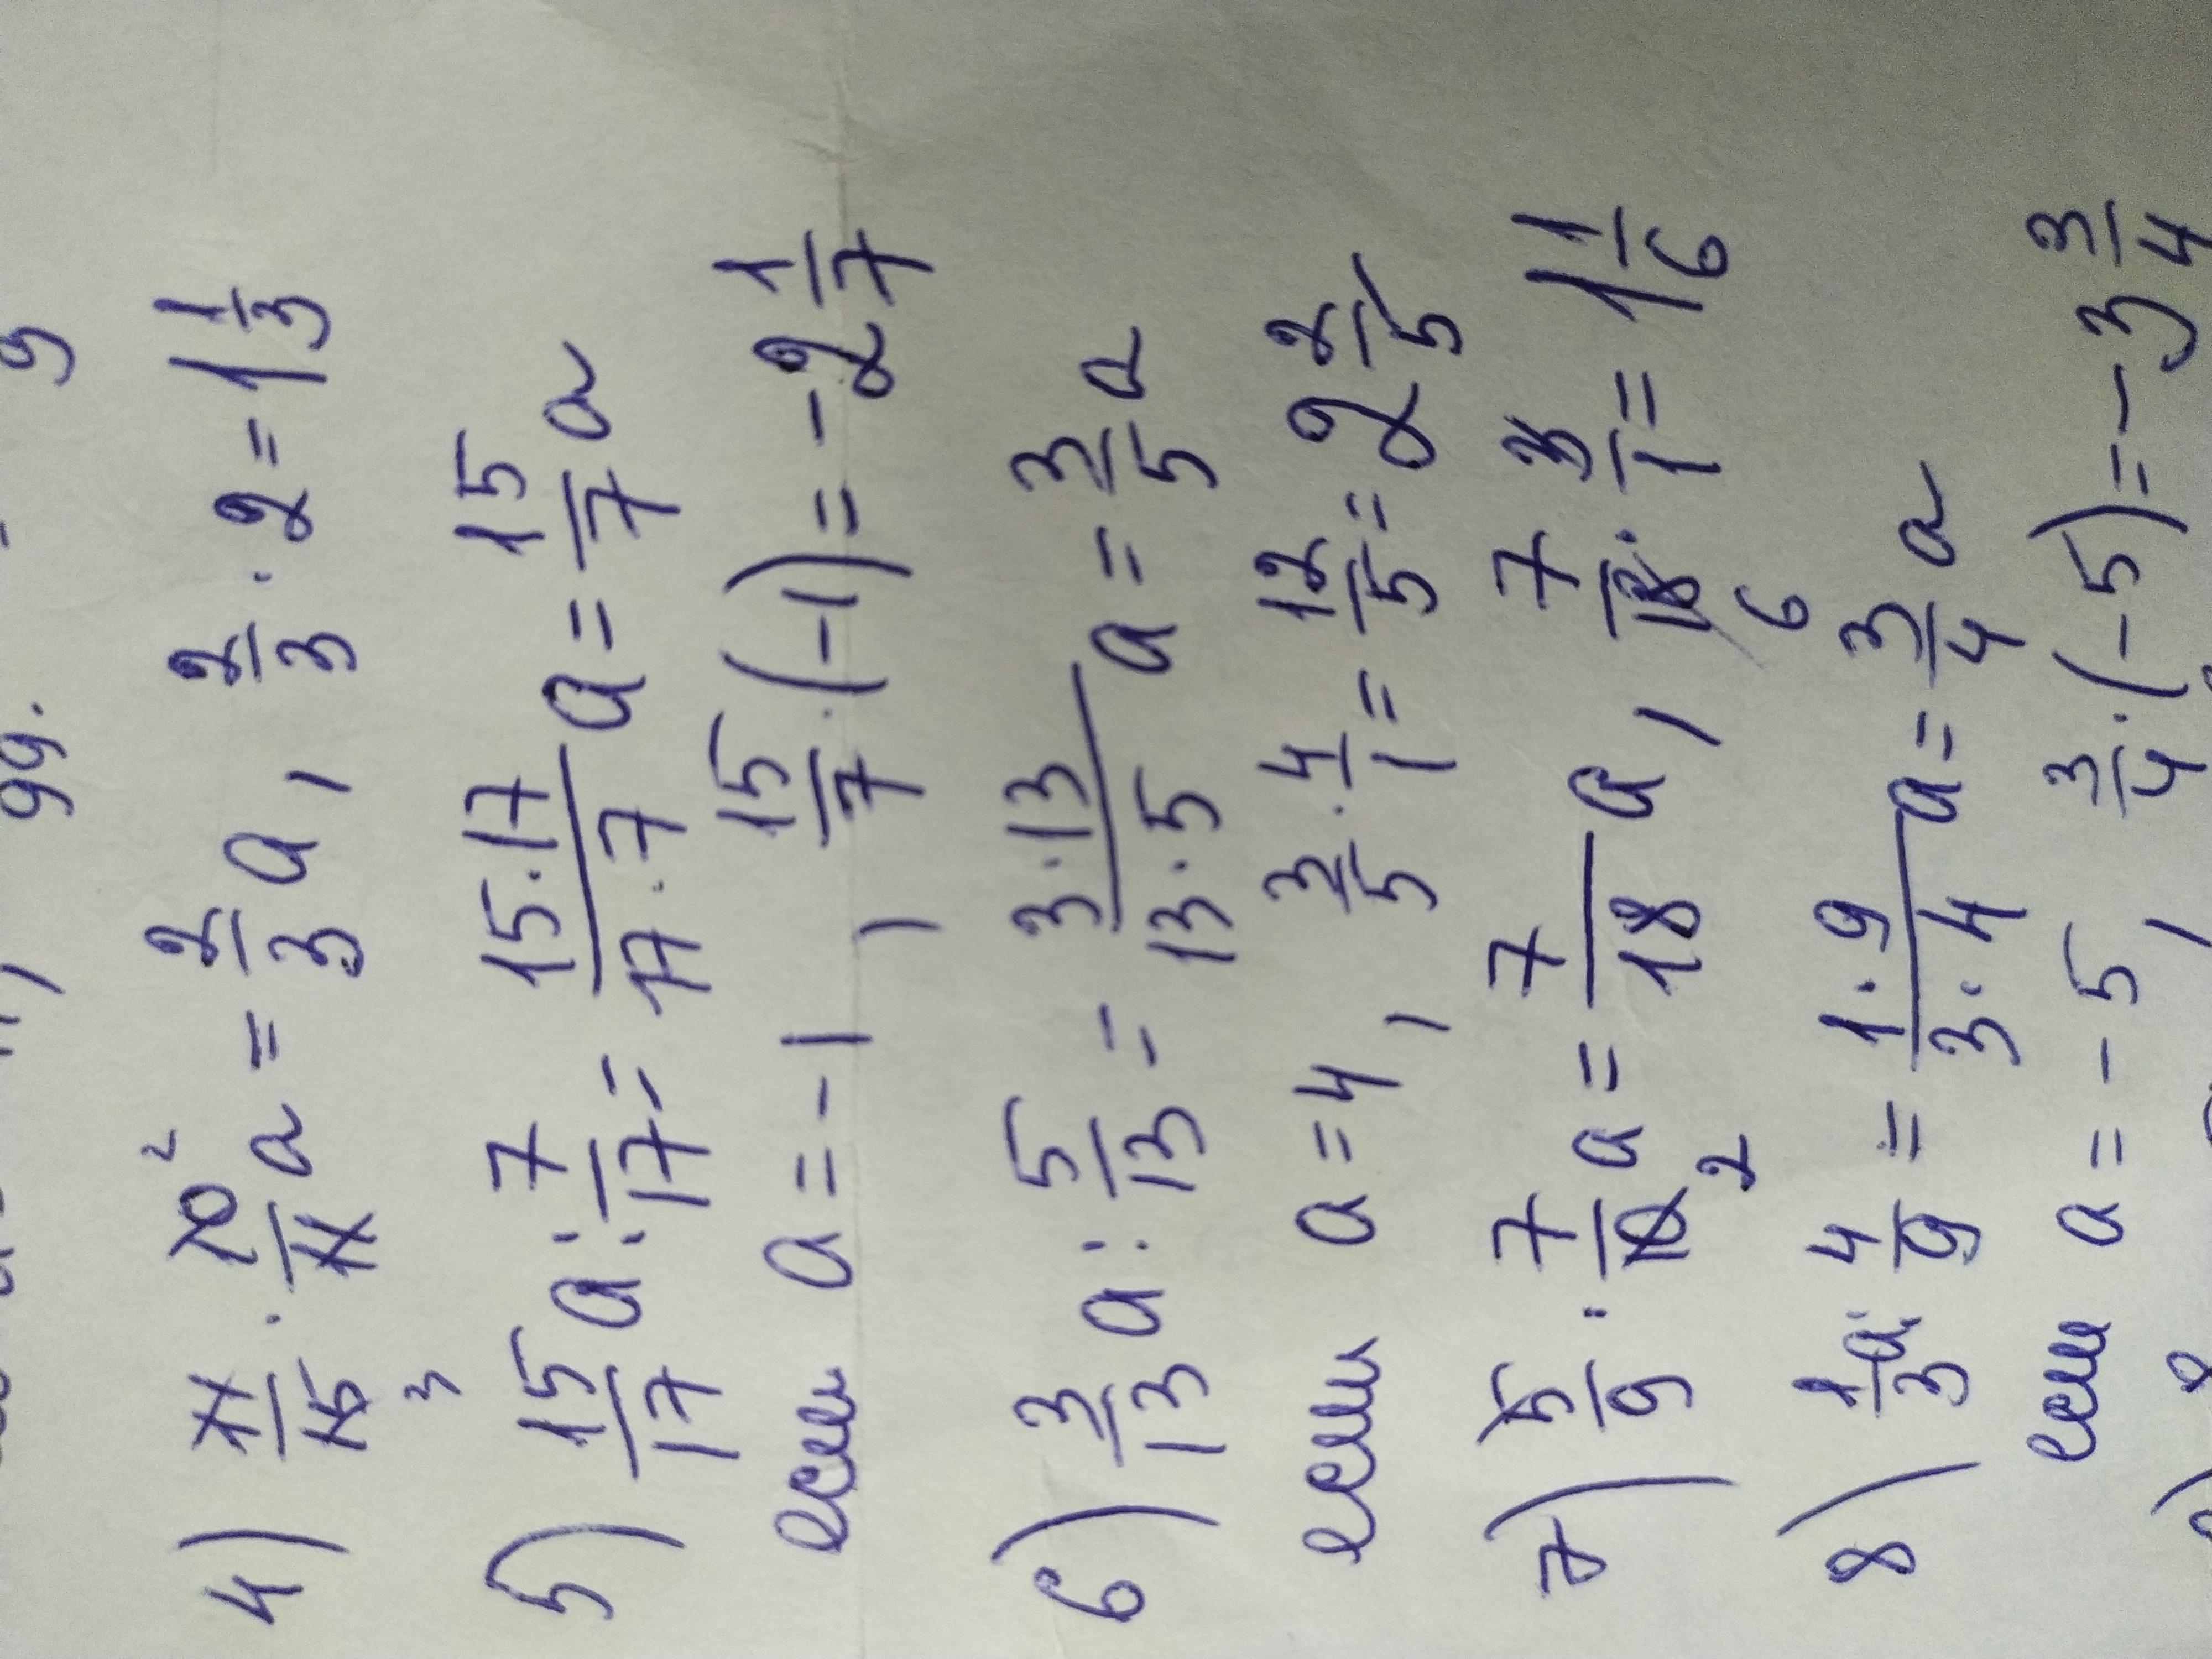 4) 11/15 · 10/11 a = 2/3 a, 2/3 · 2 = 1 1/3
2
3
5) 15/17 a : 7/17 = 15·17/17·7 a = 15/7 a
если a = -1, 15/7 · (-1) = -2 1/7
6) 3/13 a : 5/13 = 3·13/13·5 a = 3/5 a
если a = 4, 3/5 · 4/1 = 12/5 = 2 2/5
7) 5/9 · 7/10 a = 7/18 a, 7/18 · 3/1 = 1 1/6
2
6
8) 1/3 a : 4/9 = 1·9/3·4 a = 3/4 a
если a = -5, 3/4 · (-5) = -3 3/4